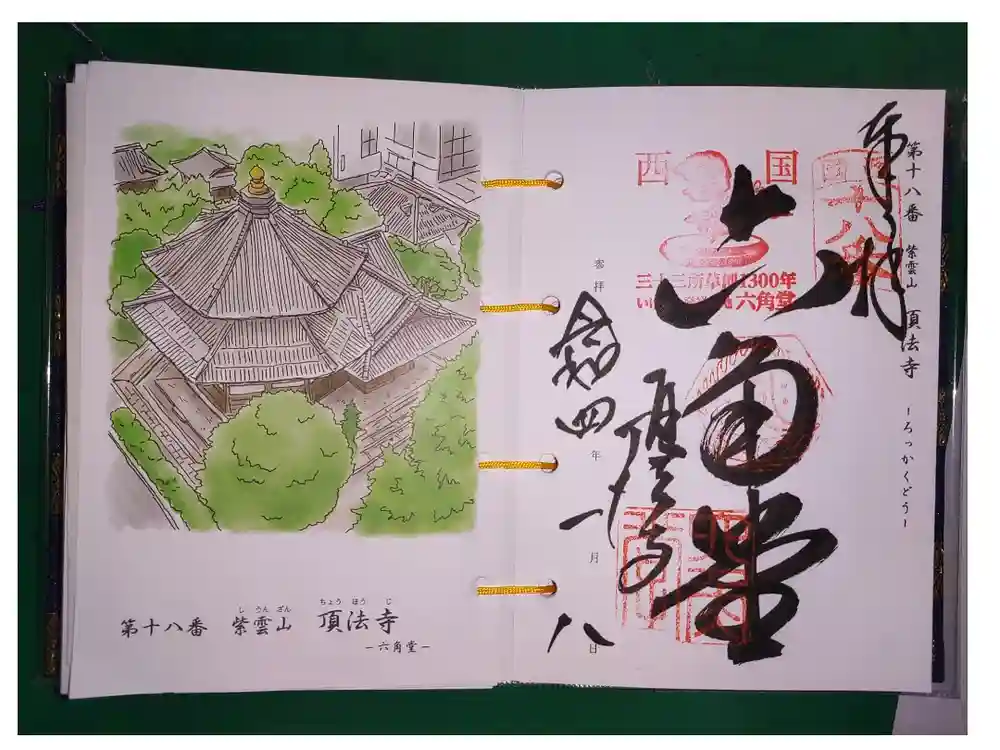 第十八番 紫雲山 頂法寺
しうんざん
ちょうほうじ
－六角堂－
第十八番 紫雲山 頂法寺 －ろっかくどう－
奉拝
西国
三十三所草創1300年
六角堂
十八番
六角堂
頂法寺
参拝
令和四年一月八日